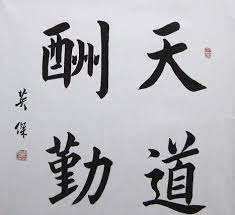 天道
酬勤
英保